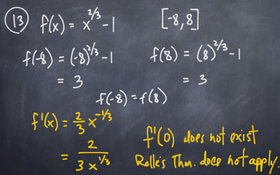 ⑬ f(x) = x^{2/3} - 1   [-8, 8]
f(-8) = (-8)^{2/3} - 1   f(8) = (8)^{2/3} - 1
= 3   = 3
f(-8) = f(8)
f'(x) = 2/3 x^{-1/3}   f'(0) does not exist
= 2 / 3x^{1/3}   Rolle's Thm. does not apply.